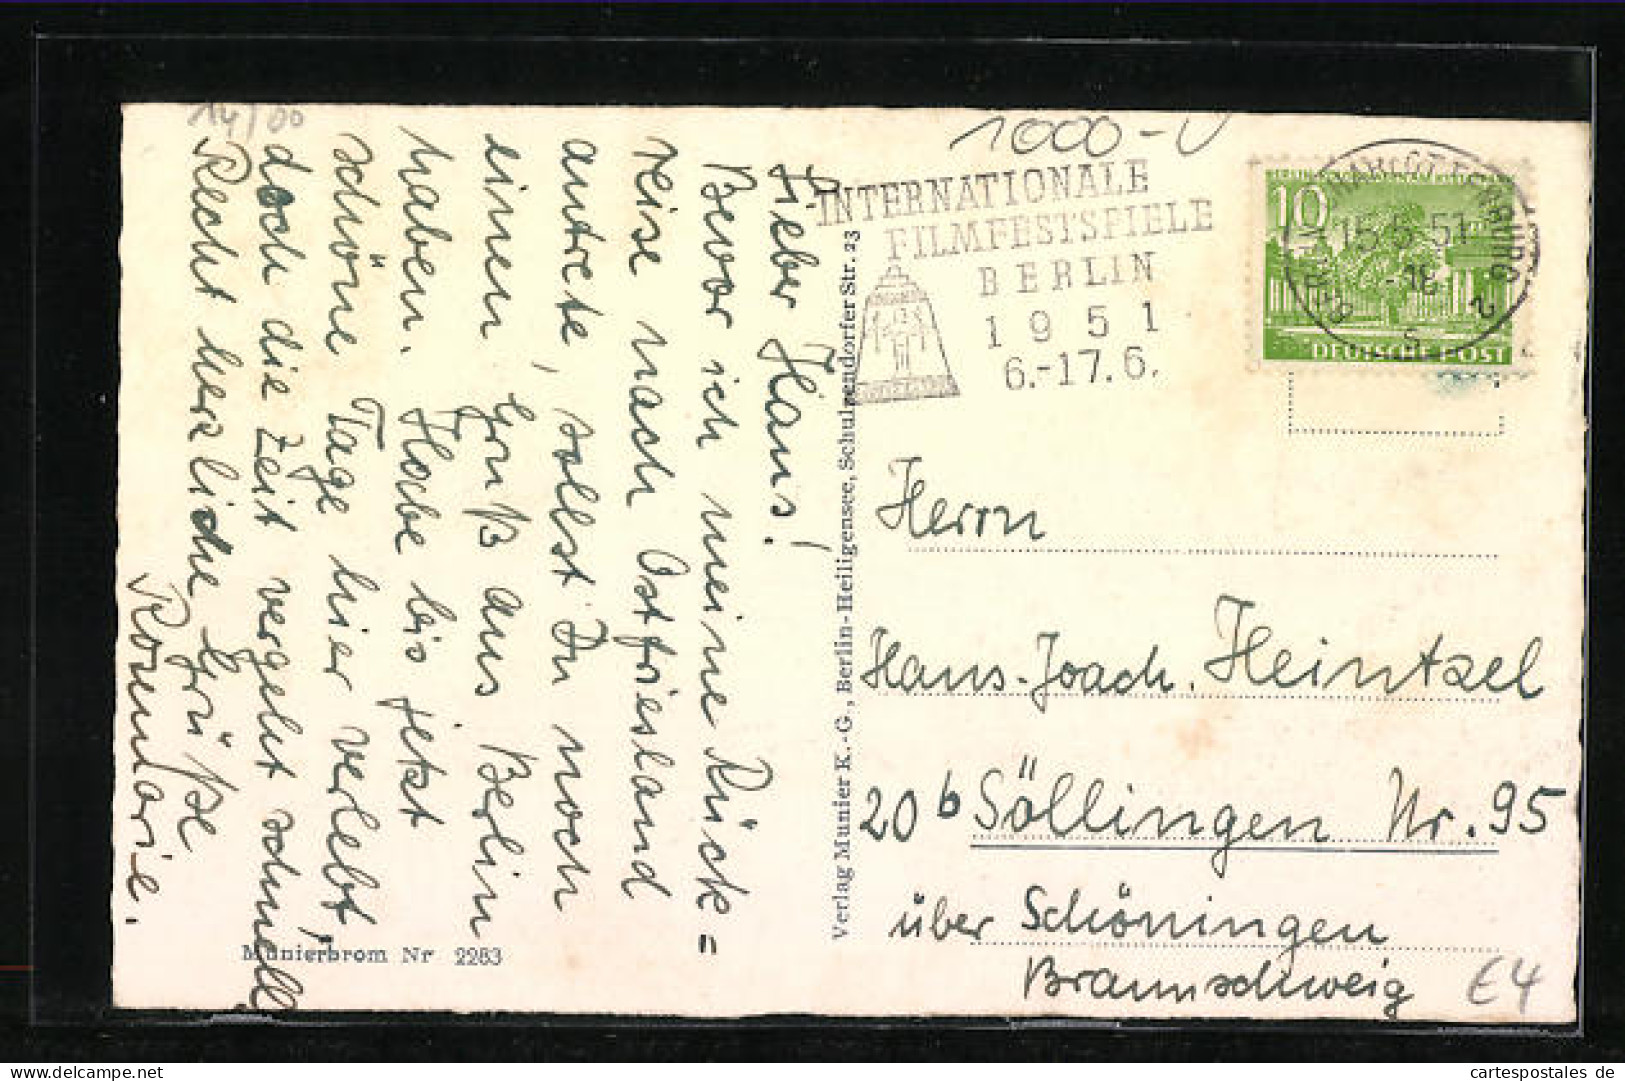 14/00
Lieber Hans!
Bevor ich meine Rück=
reise nach Ostfriesland
antrete, sollst Du noch
einen Gruß aus Berlin
haben. Habe bis jetzt
schöne Tage hier verlebt,
doch die Zeit vergeht schnell
Recht herzliche Grüße
Rosemarie.
Munierbrom Nr 2283
Verlag Munier K.-G., Berlin-Heiligensee, Schulzendorfer Str. 23
1000-
INTERNATIONALE
FILMFESTSPIELE
BERLIN
1951
6.-17.6.
10
15.5.51
-18
2
s
DEUTSCHE POST
Herrn
Hans-Joach. Heintzel
20b Söllingen Nr. 95
über Schöningen
Braunschweig
€4
cartespostales.de